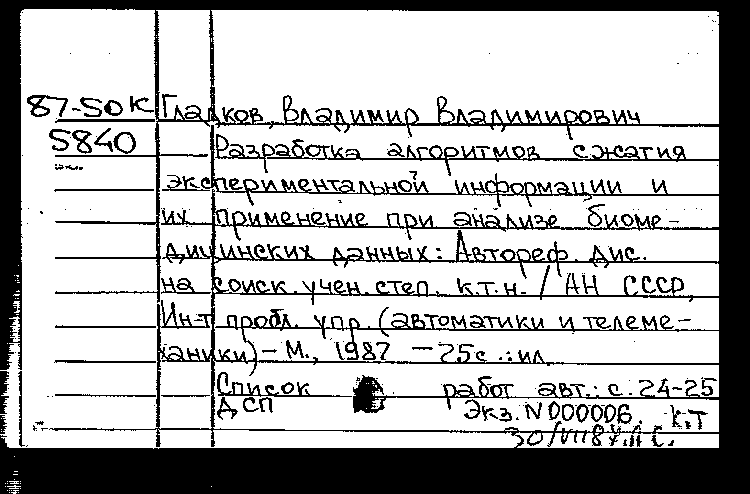 87-50к Гладков, Владимир Владимирович
5840 Разработка алгоритмов сжатия
экспериментальной информации и
их применение при анализе биоме-
дицинских данных: Автореф. дис.
на соиск. учен. степ. к.т.н. / АН СССР,
Ин-т пробл. упр. (автоматики и телеме-
ханики) – М., 1987 – 25с.: ил.
Список работ авт.: с. 24-25
ДСП Экз. N 000006. к.т